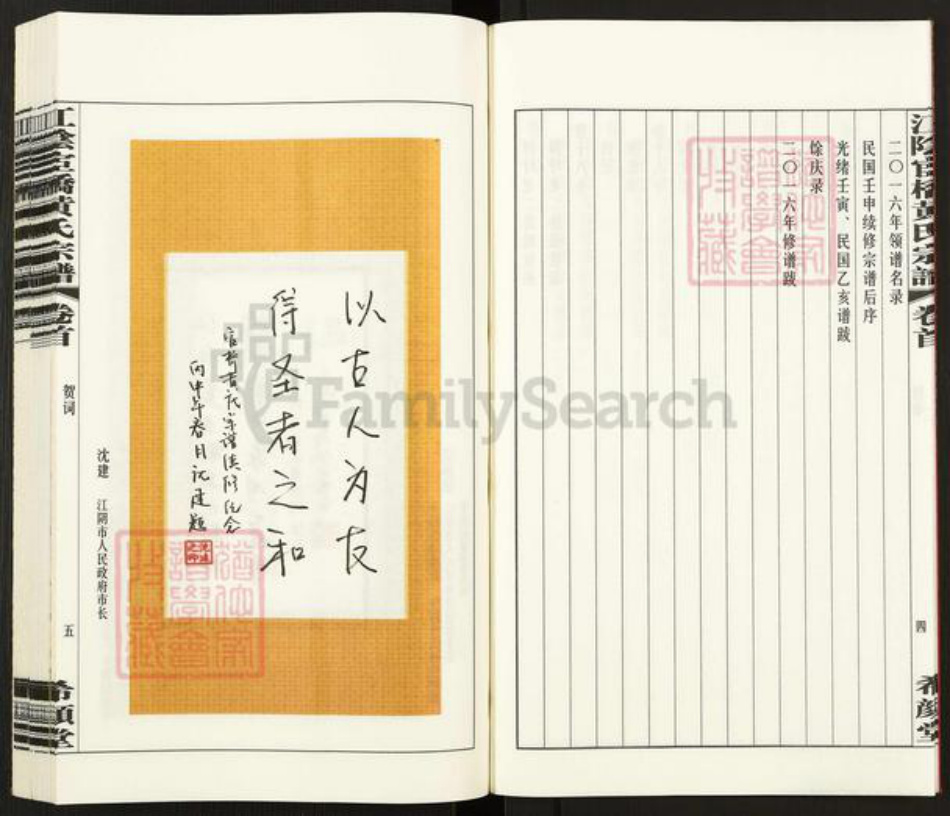 江陰官橋黃氏宗譜 卷首
二〇一六年领谱名录
民国壬申续修宗谱后序
光绪壬寅、民国乙亥谱跋
馀庆录
二〇一六年修谱跋
四
希顔堂
以古人为友
得圣者之和
官桥黄氏宗谱续修纪念
丙申年春月沈建题
沈建 江阴市人民政府市长
江陰官橋黃氏宗譜 卷首
贺词
五
希顔堂
FamilySearch